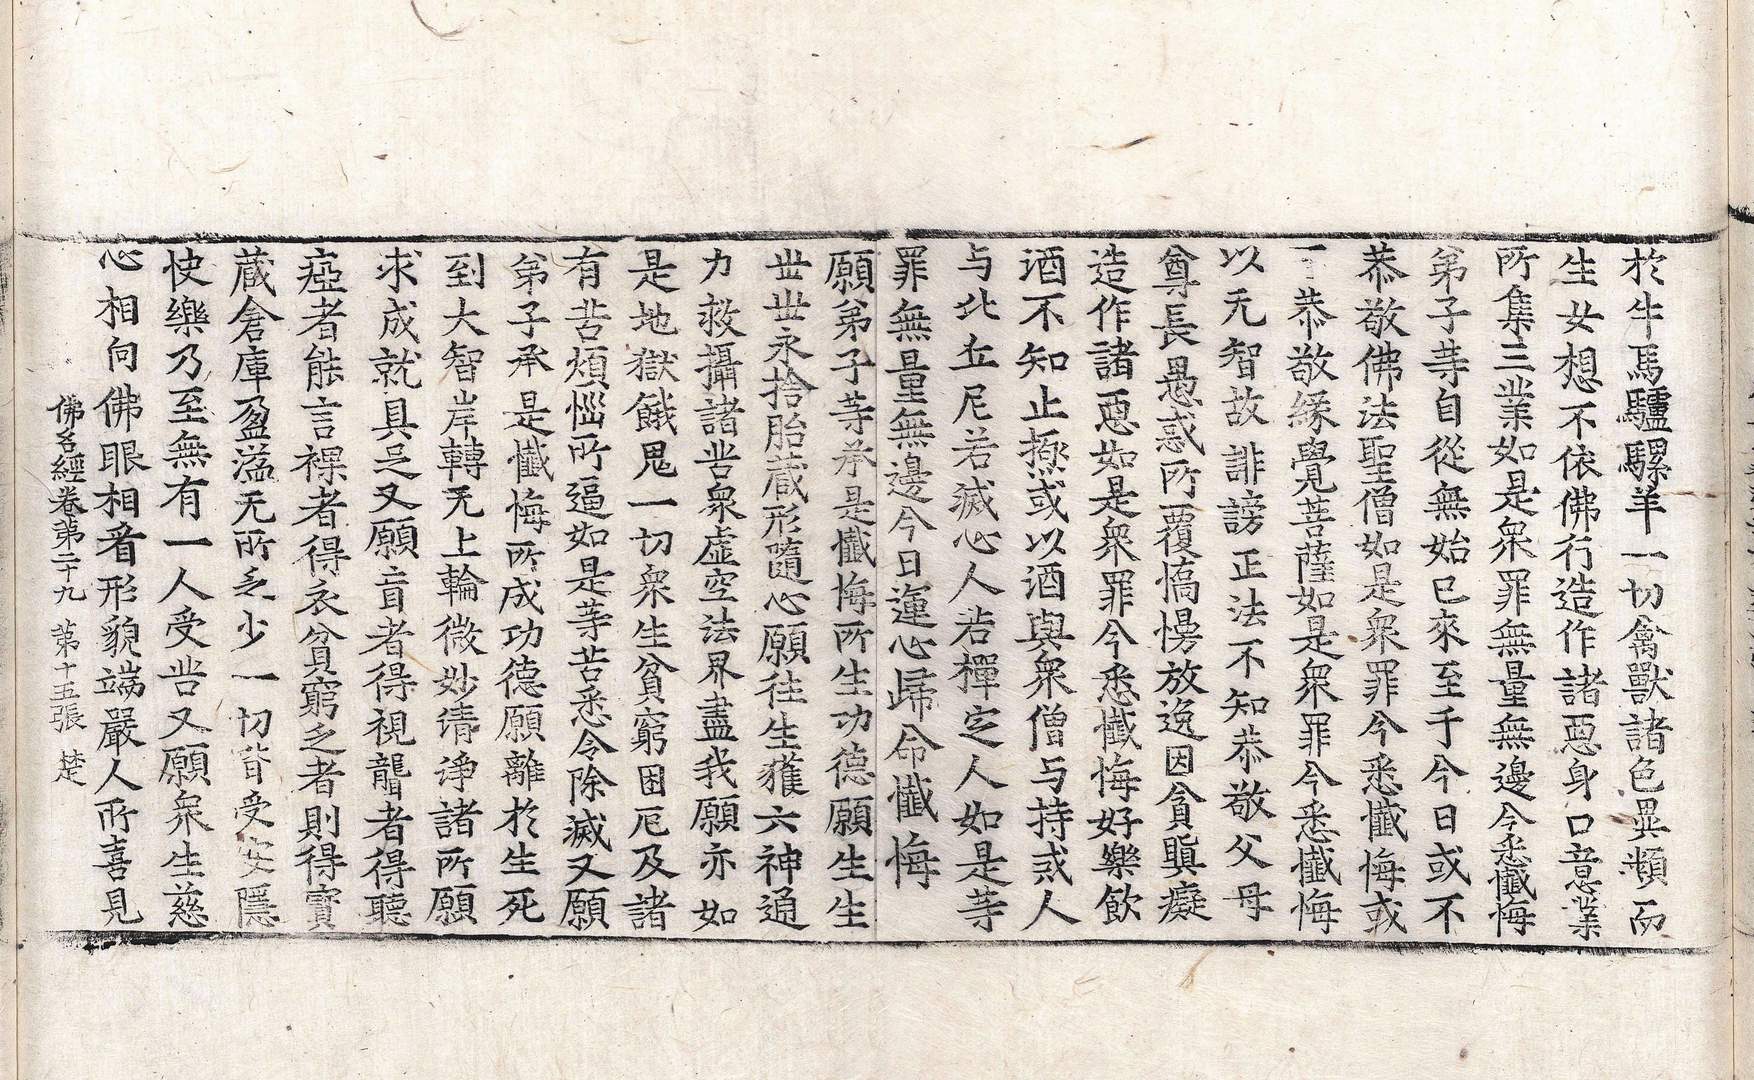 於牛馬驢騾羊一切禽獸諸色異類而
生女想不依佛行造作諸惡身口意業
所集三業如是衆罪無量無邊今悉懺悔
弟子等自從無始已來至于今日或不
恭敬佛法聖僧如是衆罪今悉懺悔或
不恭敬緣覺菩薩如是衆罪今悉懺悔
以无智故誹謗正法不知恭敬父母
尊長愚惑所覆憍慢放逸因貪瞋癡
造作諸惡如是衆罪今悉懺悔好樂飮
酒不知止極或以酒與衆僧与持戒人
与比丘尼若滅心人若禪定人如是等
罪無量無邊今日運心歸命懺悔
願弟子等承是懺悔所生功德願生生
世世永捨胎蔵形隨心願往生獲六神通
力救攝諸世衆虛空法界盡我願亦如
是地獄餓鬼一切衆生貧窮困厄及諸
有苦煩惱所逼如是等苦悉令除滅又願
弟子承是懺悔所成功德願離於生死
到大智岸轉无上輪微妙清淨諸所願
求成就具足又願盲者得視聾者得聽
瘂者能言裸者得衣貧窮乏者則得寶
蔵倉庫盈溢无所乏少一切皆受安隱
快樂乃至無有一人受苦又願衆生慈
心相向佛眼相看形貌端嚴人所喜見
佛名經卷第二十九　第十五張　楚